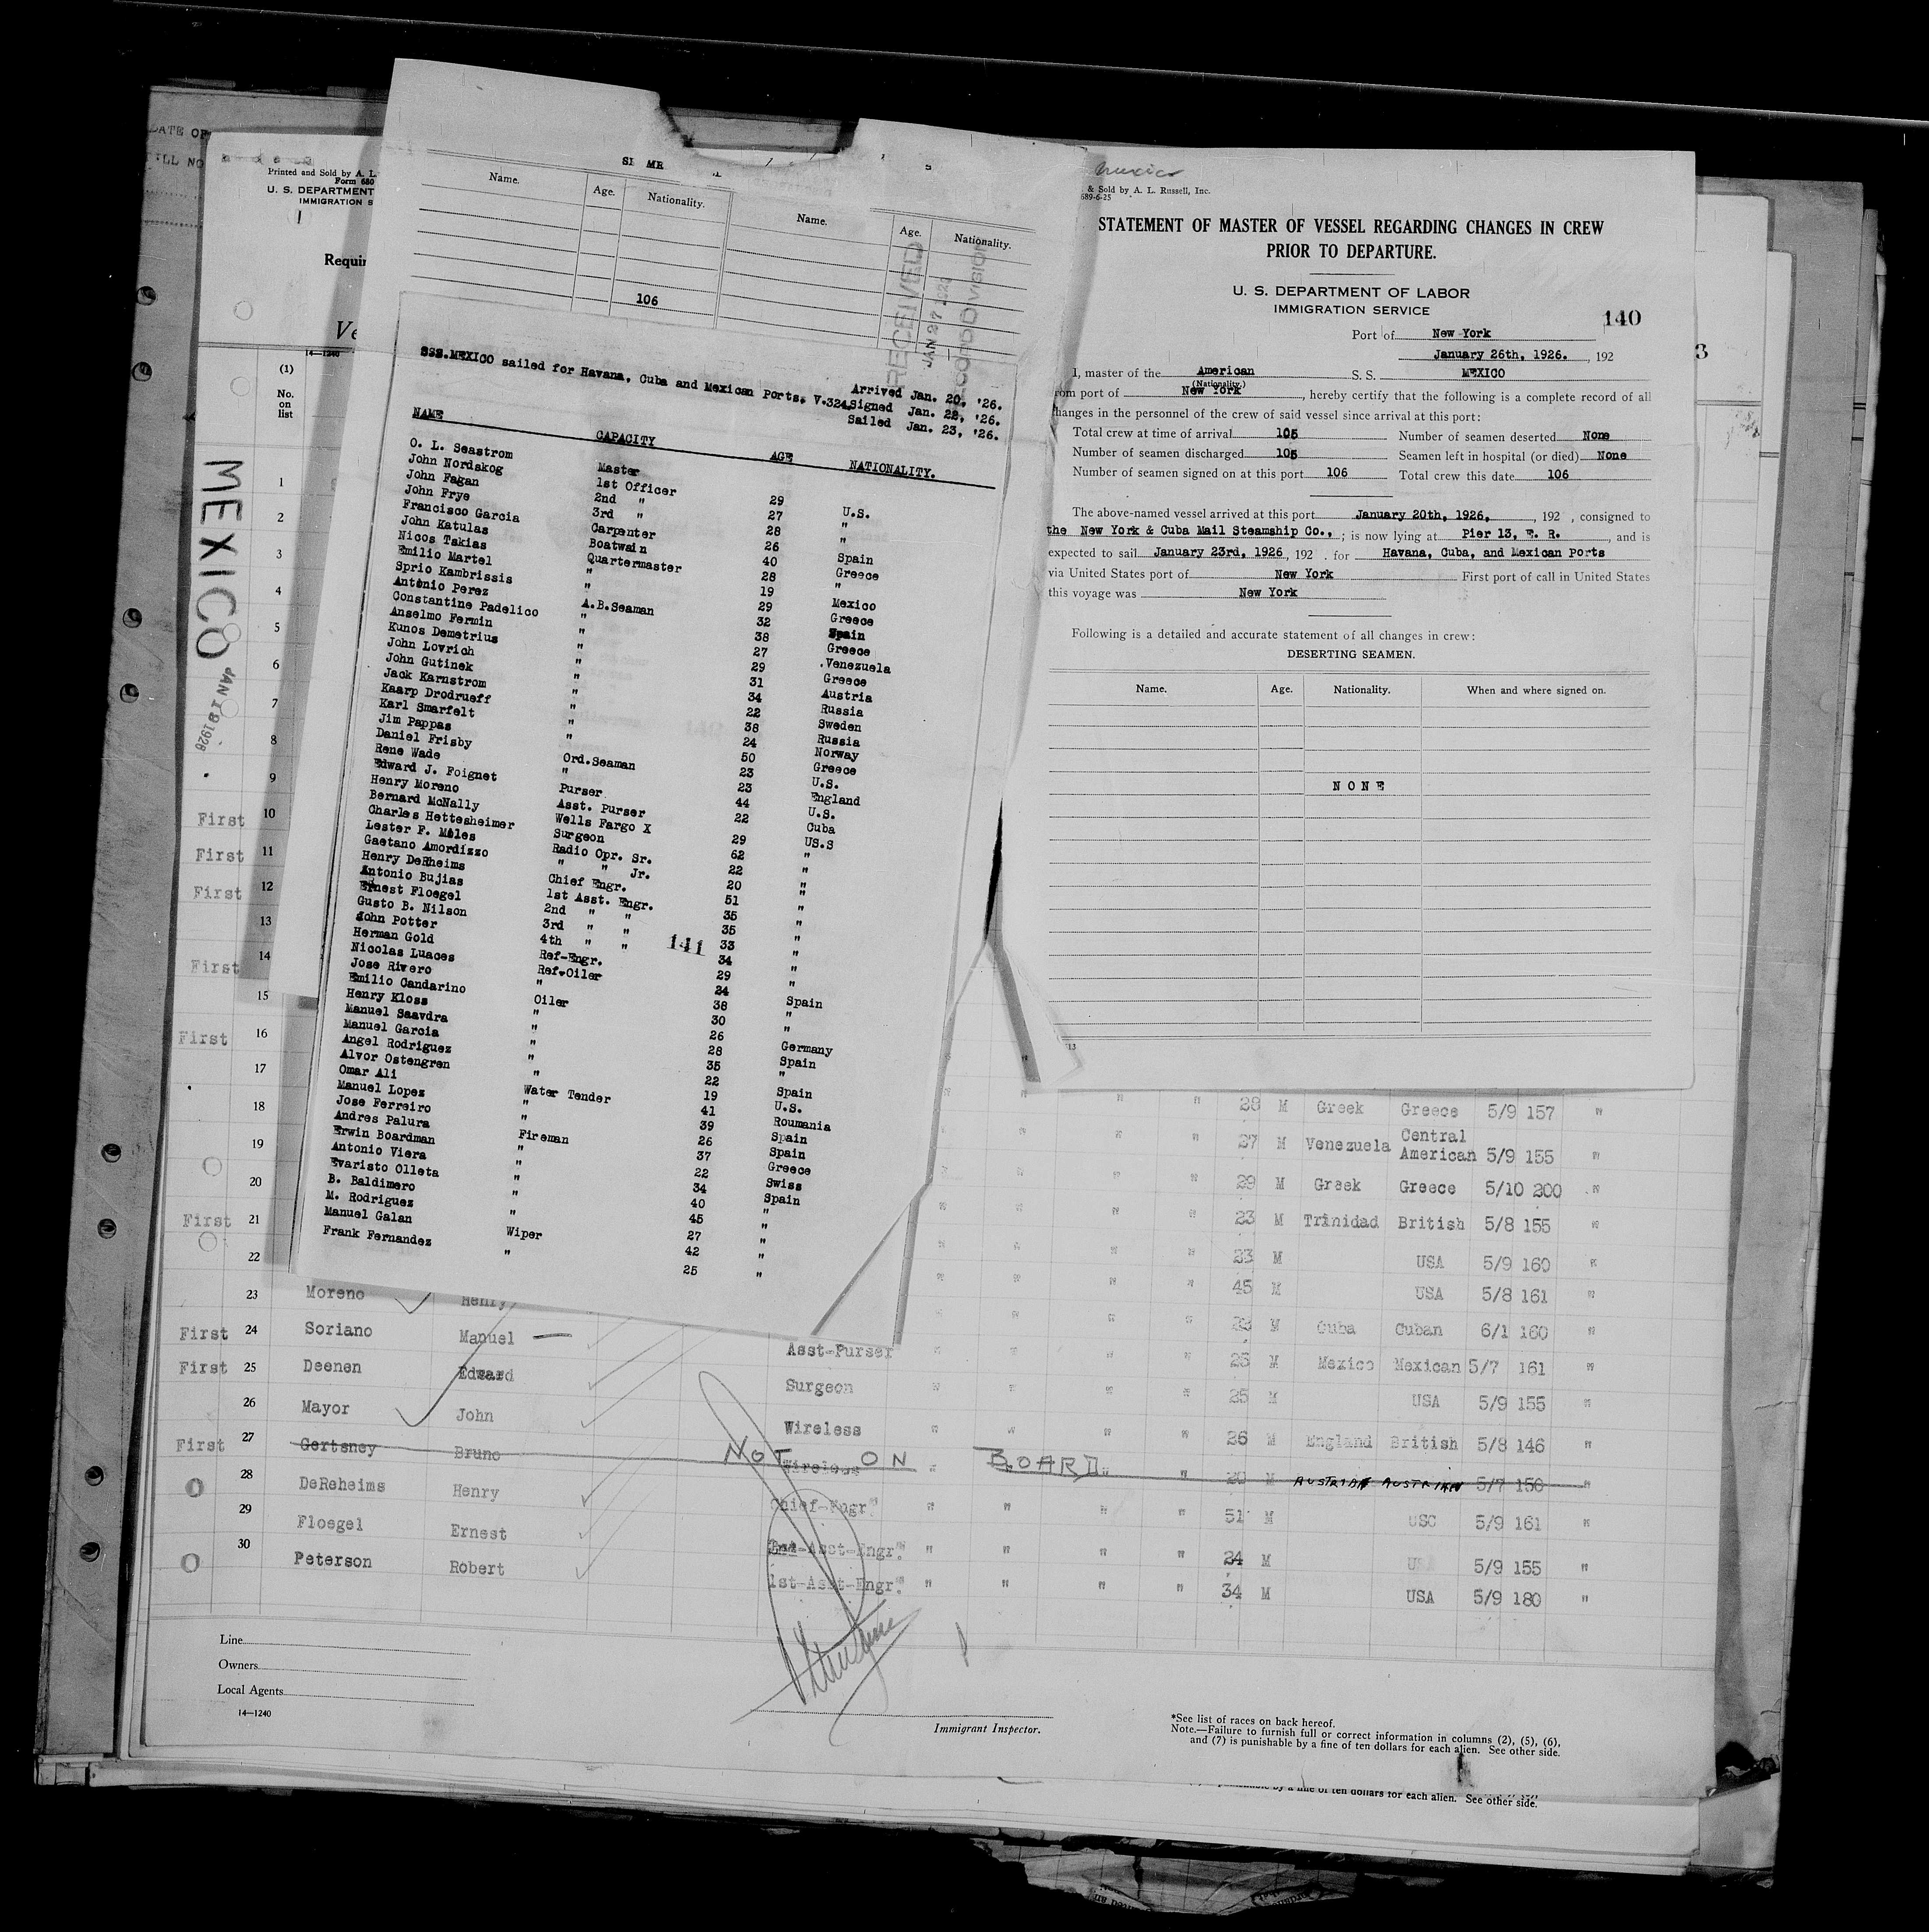 SSS.MEXICO sailed for Havana, Cuba and Mexican Ports, V.324
Arrived Jan. 20, '26.
Signed Jan. 22, '26.
Sailed Jan. 23, '26.
NAME CAPACITY AGE NATIONALITY.
O. L. Seastrom Master
John Nordskog 1st Officer 29 U.S.
John Fagan 2nd " 27 "
John Frye 3rd " 28 "
Francisco Garcia Carpenter 26 Spain
John Katulas Boatwain 40 Greece
Nicos Takias Quartermaster 28 "
Emilio Martel " 19 Mexico
Sprio Kambrissis " 29 Greece
Antonio Perez A.B.Seaman 32 Spain
Constantine Padelico " 38 Greece
Anselmo Fermin " 27 Venezuela
Kunos Demetrius " 29 Greece
John Lovrich " 31 Austria
John Gutinek " 34 Russia
Jack Karnstrom " 22 Sweden
Kaarp Drodrueff " 38 Russia
Karl Smarfelt " 24 Norway
Jim Pappas " 50 Greece
Daniel Frisby Ord.Seaman 23 U.S.
Rene Wade " 23 England
Edward J. Foignet Purser 44 U.S.
Henry Moreno Asst. Purser 22 Cuba
Bernard McNally Wells Fargo X 29 US.S
Charles Hettesheimer Surgeon 62 "
Lester F. Miles Radio Opr. Sr. 22 "
Gaetano Amordizzo " " Jr. 20 "
Henry DeRheims Chief Engr. 51 "
Antonio Bujias 1st Asst. Engr. 35 "
Ernest Floegel 2nd " " 35 "
Gusto B. Nilson 3rd " " 33 "
John Potter 4th " " 34 "
Herman Gold Ref-Engr. 29 "
Nicolas Luaces Ref-Oiler 24 Spain
Jose Rivero " 38 "
Emilio Candarino Oiler 30 "
Henry Kloss " 26 Germany
Manuel Saavdra " 28 Spain
Manuel Garcia " 35 "
Angel Rodriguez " 22 Spain
Alvor Ostengren " 19 U.S.
Omar Ali Water Tender 41 Roumania
Manuel Lopez " 39 Spain
Jose Ferreiro " 26 Spain
Andres Palura Fireman 37 Greece
Erwin Boardman " 22 Swiss
Antonio Viera " 34 Spain
Evaristo Olleta " 40 "
B. Baldimero " 45 "
M. Rodriguez " 27 "
Manuel Galan Wiper 42 "
Frank Fernandez " 25 "
141
Name. Age. Nationality. Name. Age. Nationality.
106
RECEIVED
JAN 27
DIVISION
Mexico
& Sold by A. L. Russell, Inc.
689-6-25
STATEMENT OF MASTER OF VESSEL REGARDING CHANGES IN CREW
PRIOR TO DEPARTURE.
U. S. DEPARTMENT OF LABOR
IMMIGRATION SERVICE
140
Port of New York
January 26th, 1926. , 192
I, master of the American S. S. MEXICO
(Nationality.)
rom port of New York , hereby certify that the following is a complete record of all
hanges in the personnel of the crew of said vessel since arrival at this port:
Total crew at time of arrival 105 Number of seamen deserted None
Number of seamen discharged 105 Seamen left in hospital (or died) None
Number of seamen signed on at this port 106 Total crew this date 106
The above-named vessel arrived at this port January 20th, 1926, , 192 , consigned to
the New York & Cuba Mail Steamship Co., ; is now lying at Pier 13, E. R. , and is
expected to sail January 23rd, 1926 , 192 . for Havana, Cuba, and Mexican Ports
via United States port of New York First port of call in United States
this voyage was New York
Following is a detailed and accurate statement of all changes in crew:
DESERTING SEAMEN.
Name. Age. Nationality. When and where signed on.
NONE
Printed and Sold by A. L.
Form 680
U. S. DEPARTMENT
IMMIGRATION S
Requir
Ve
14—1240
(1)
No.
on
list
MEXICO
JAN 19 1926
3
1
2
3
4
5
6
7
8
9
First 10
First 11
First 12
13
First 14
15
First 16
17
18
19
20
First 21
22
28 M Greek Greece 5/9 157 "
27 M Venezuela Central American 5/9 155 "
29 M Greek Greece 5/10 200 "
23 M Trinidad British 5/8 155 "
23 M USA 5/9 160 "
45 M USA 5/8 161 "
23 Moreno Henry M Cuba Cuban 6/1 160 "
First 24 Soriano Manuel Asst-Purser " " " " 25 M Mexico Mexican 5/7 161 "
First 25 Deenen Edward Surgeon " " " " 25 M USA 5/9 155 "
26 Mayor John Wireless " " " " 26 M England British 5/8 146 "
First 27 Gertsney Bruno Wireless " " " 20 M AUSTRIA AUSTRIAN 5/7 150 "
NOT ON BOARD
28 DeReheims Henry Chief-Engr " " " " 51 M USC 5/9 161 "
29 Floegel Ernest 2nd-Asst-Engr. " " " " 24 M US 5/9 155 "
30 Peterson Robert 1st-Asst-Engr. " " " " 34 M USA 5/9 180 "
Line
Owners
Local Agents
14—1240
Immigrant Inspector.
*See list of races on back hereof.
Note.—Failure to furnish full or correct information in columns (2), (5), (6),
and (7) is punishable by a fine of ten dollars for each alien. See other side.
by a fine of ten dollars for each alien. See other side.